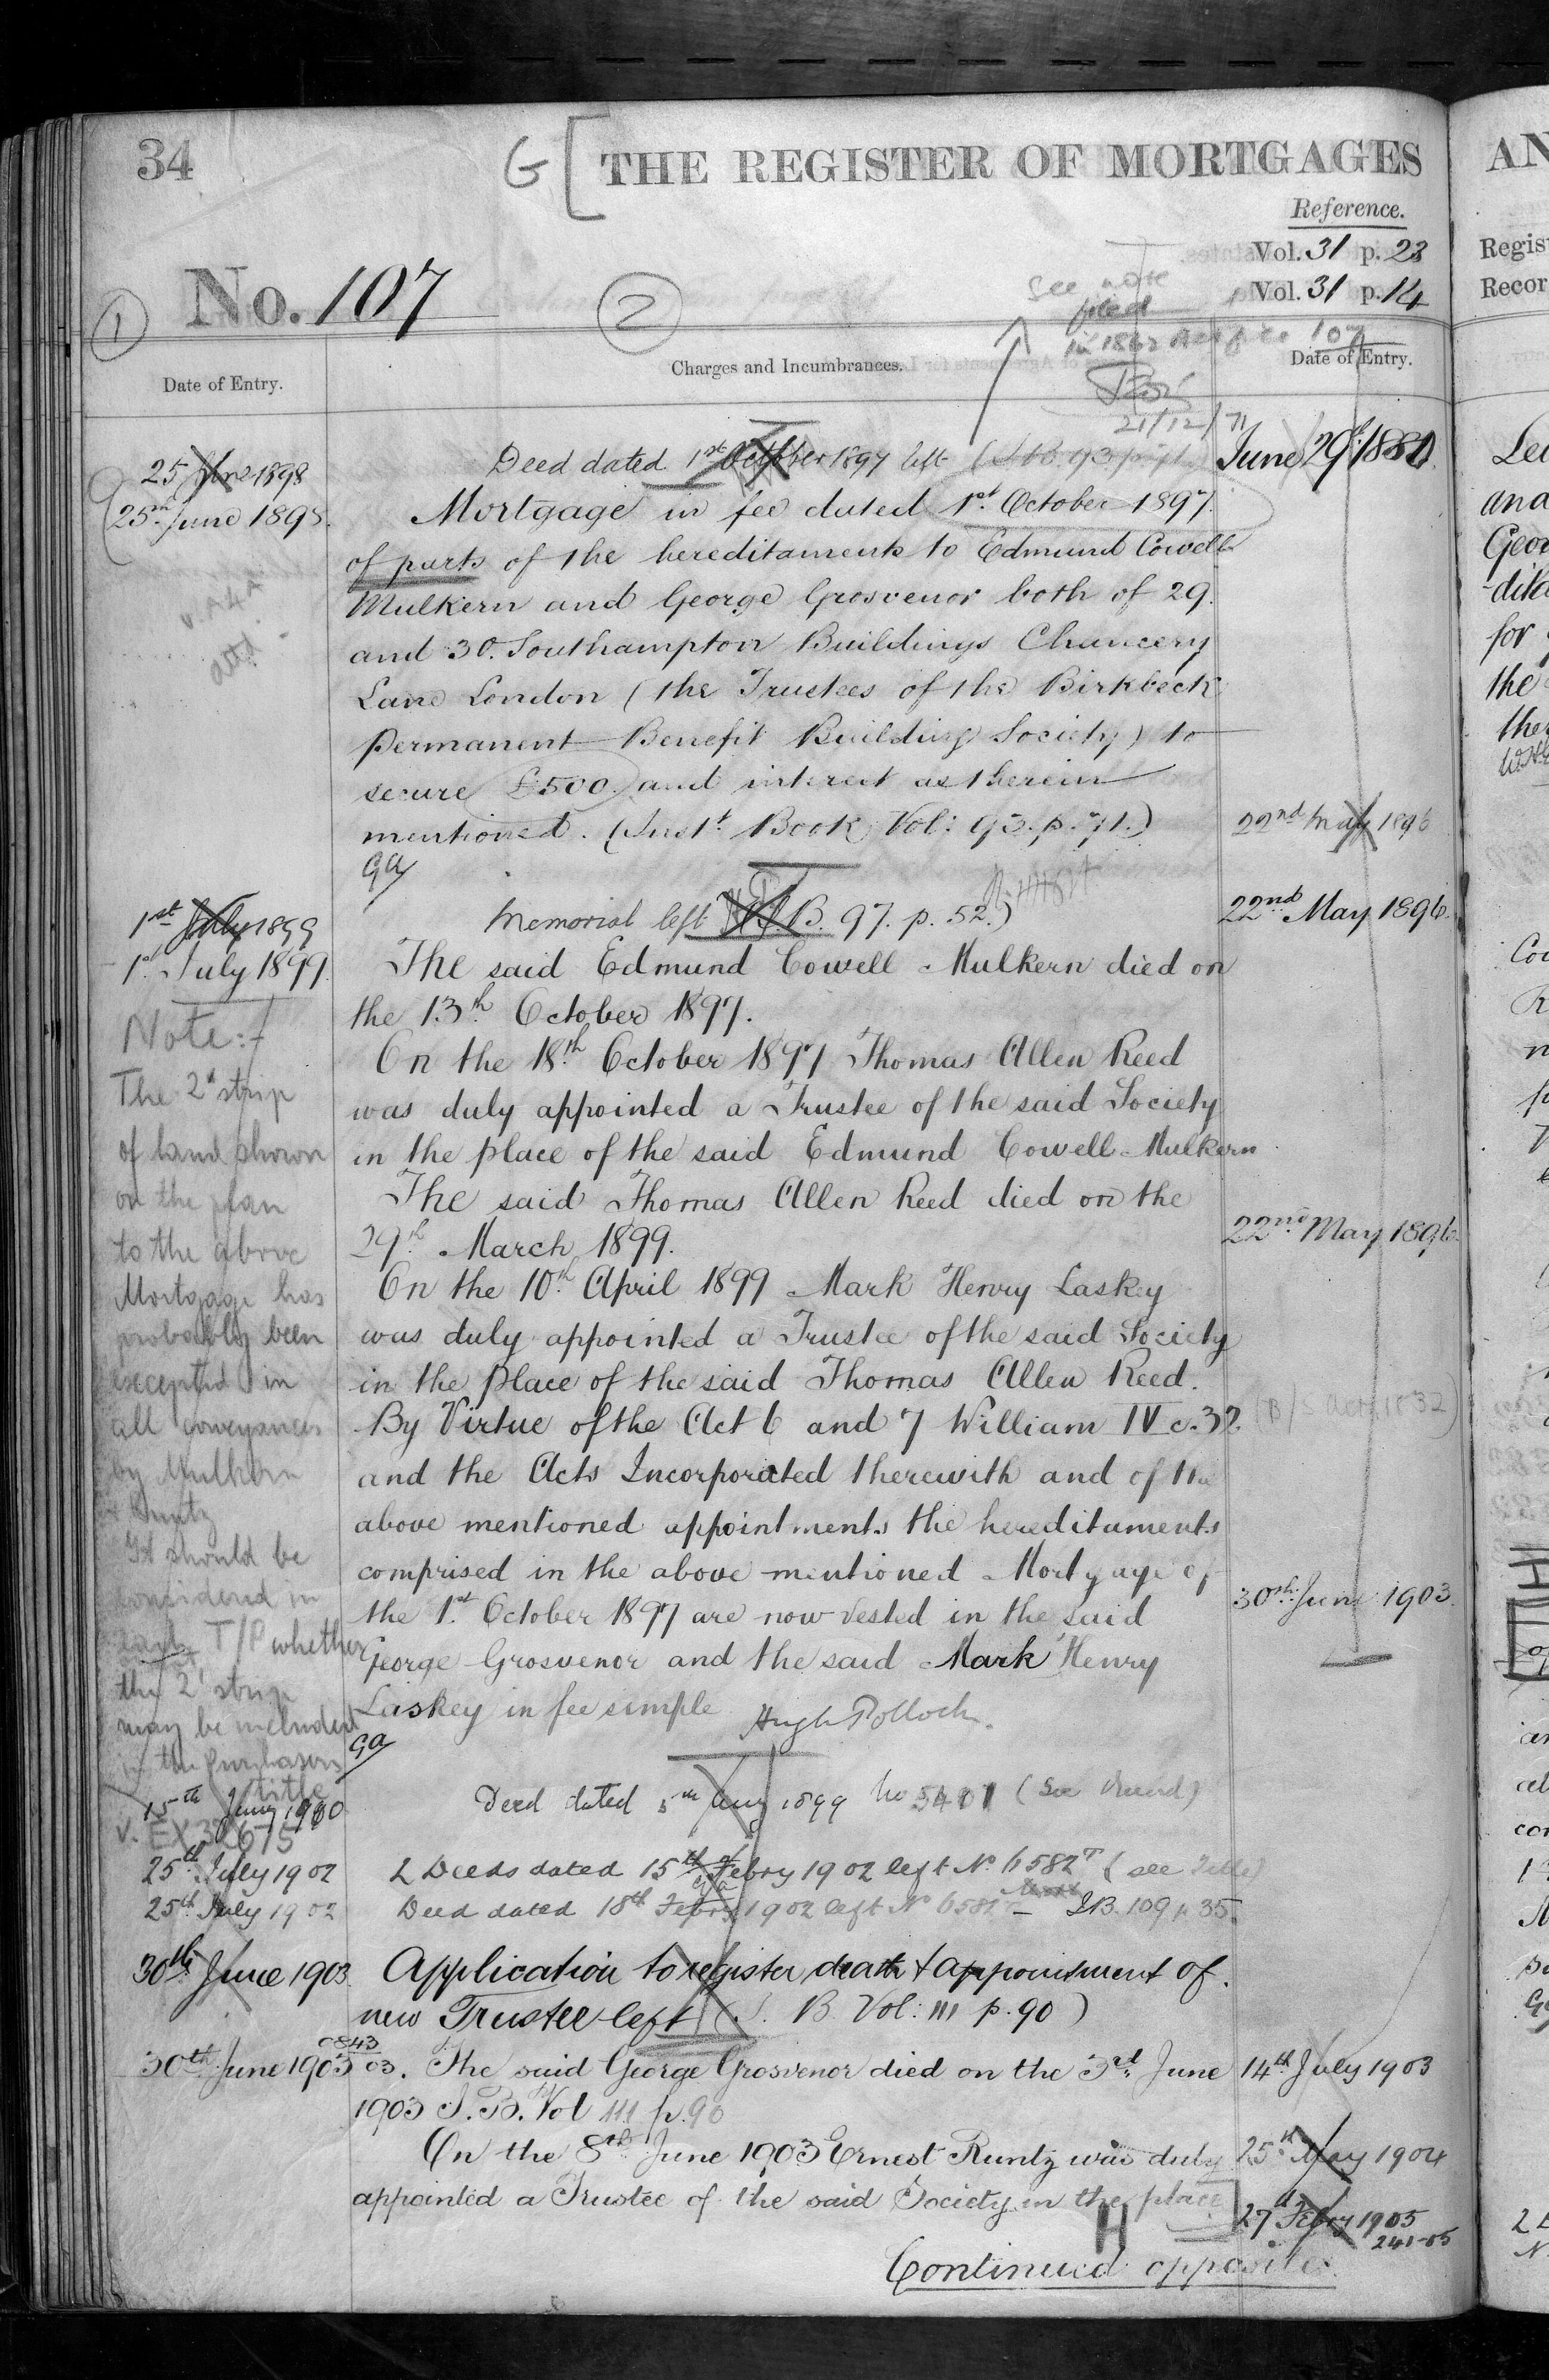 34
G [ THE REGISTER OF MORTGAGES
Reference.
Vol. 31 p. 23
Vol. 31 p. 14
No. 107
1
2
See note
filed
in 1862 Act
21/12/71
Date of Entry.
Charges and Incumbrances.
Date of Entry.
25 June 1898
Deed dated 1st October 1897 left (I.B. 93 p. 71)
June 29th 1880
25th June 1898.
Mortgage in fee dated 1st October 1897.
of parts of the hereditaments to Edmund Cowell
Mulkern and George Grosvenor both of 29.
and 30. Southampton Buildings Chancery
Lane London (the Trustees of the Birkbeck
Permanent Benefit Building Society) to
secure £500. and interest as therein
mentioned. (Inst. Book Vol: 93. p. 71.)
22nd May 1896
1st July 1899
Memorial left I.B. 97. p. 52.)
22nd May 1896.
1st July 1899.
The said Edmund Cowell Mulkern died on
the 13th October 1897.
On the 18th October 1897 Thomas Allen Reed
was duly appointed a Trustee of the said Society
in the place of the said Edmund Cowell Mulkern
The said Thomas Allen Reed died on the
29th March 1899.
22nd May 1896.
On the 10th April 1899 Mark Henry Laskey
was duly appointed a Trustee of the said Society
in the place of the said Thomas Allen Reed.
By Virtue of the Act 6 and 7 William IV c. 32
and the Acts Incorporated therewith and of the
above mentioned appointments the hereditaments
comprised in the above mentioned Mortgage of
the 1st October 1897 are now vested in the said
30th June 1903.
George Grosvenor and the said Mark Henry
Laskey in fee simple
Hugh Pollock.
Note:-
The 2d strip
of land shown
on the plan
to the above
Mortgage has
probably been
excepted in
all conveyances
by Mulkern
& Runtz
It should be
considered in
each T/P whether
the 2d strip
may be included
in the purchasers
title
15th June 1900
Deed dated 5th Aug 1899 No 5401
v. EX 32675
25th July 1902
2 Deeds dated 15th Febry 1902 left No. 6582 (see Title)
25th July 1902
Deed dated 18th Febry 1902 left No 6582 I.B. 109 p. 35.
30th June 1903.
Application to register death & appointment of
new Trustee left (I. B Vol: 111 p. 90)
30th June 1903
03. The said George Grosvenor died on the 3rd June
14th July 1903
1903 I.B. Vol 111 p. 90
On the 8th June 1903 Ernest Runtz was duly
25th May 1904
appointed a Trustee of the said Society in the place
H
27th Febry 1905
241-05
Continued opposite.